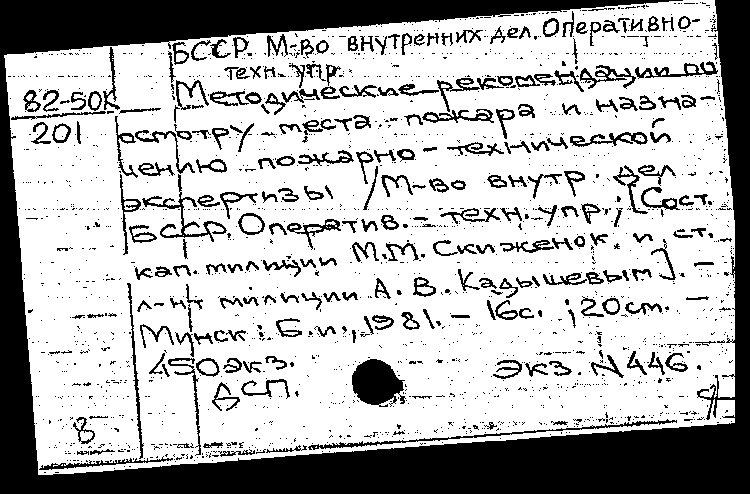 БССР. М-во внутренних дел. Оперативно-
техн. упр.
82-50К
201
Методические рекомендации по
осмотру места пожара и назна-
чению пожарно-технической
экспертизы / М-во внутр. дел
БССР. Оператив.-техн. упр.; [Сост.
кап. милиции М.М. Скиженок и ст.
л-нт милиции А.В. Кадышевым]. -
Минск: Б.и., 1981. - 16с.; 20см. -
450экз.
Экз. N446.
ДСП.
8